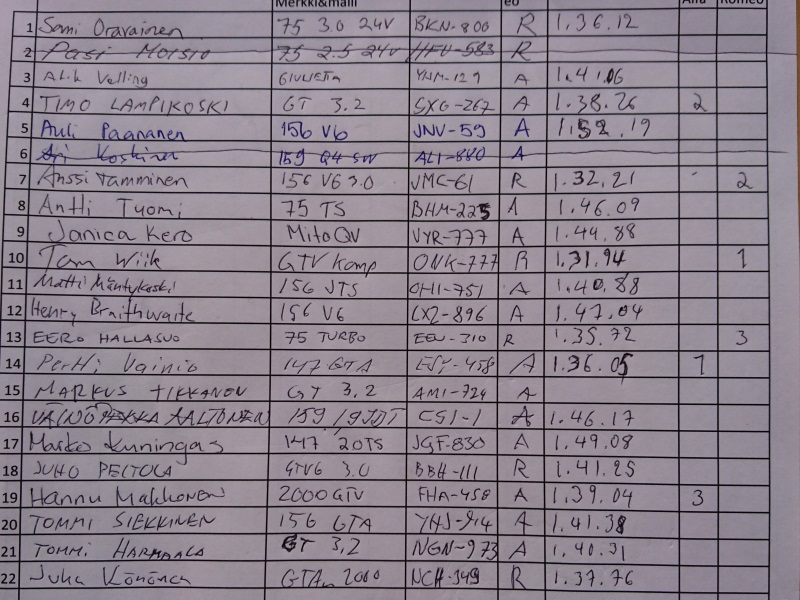 Merkki&malli eo Alfa Romeo
1 Sami Oravainen 75 3.0 24V BKN-800 R 1.36.12
2 Pasi Moisio 75 2.5 24V HFU-583 R
3 Alik Velling GIULIETTA YNM-129 A 1.41.06
4 TIMO LAMPIKOSKI GT 3.2 SXG-267 A 1.38.26 2
5 Auli Paananen 156 V6 JNV-59 A 1.52.19
6 Ari Koskinen 159 Q4 SW ALI-880 A
7 Anssi Tamminen 156 V6 3.0 JMC-61 R 1.32.21 2
8 Antti Tuomi 75 TS BHM-225 A 1.46.09
9 Janica Kero MitoQV VYR-777 A 1.44.88
10 Tom Wiik GTV Komp ONK-777 R 1.31.94 1
11 Matti Mäntykoski 156 JTS OHI-751 A 1.40.88
12 Henry Braithwaite 156 V6 CXZ-896 A 1.47.04
13 EERO HALLASUO 75 TURBO EEU-310 R 1.35.72 3
14 Pertti Vainio 147 GTA ESY-458 A 1.36.05 1
15 MARKUS TIKKANEN GT 3.2 AMI-724 A
16 VÄINÖPEKKA AALTONEN 159 1.9JTD CSI-1 A 1.46.17
17 Marko Kuningas 147 2.0TS JGF-830 A 1.49.08
18 JUHO PELTOLA GTV6 3.0 BBH-111 R 1.41.25
19 Hannu Makkonen 2000 GTV FHA-458 A 1.39.04 3
20 TOMMI SIEKKINEN 156 GTA YHJ-914 A 1.41.38
21 TOMMI HARMAALA GT 3,2 NGN-973 A 1.40.31
22 Juha Könönen GTAm 2000 NCH-349 R 1.37.76